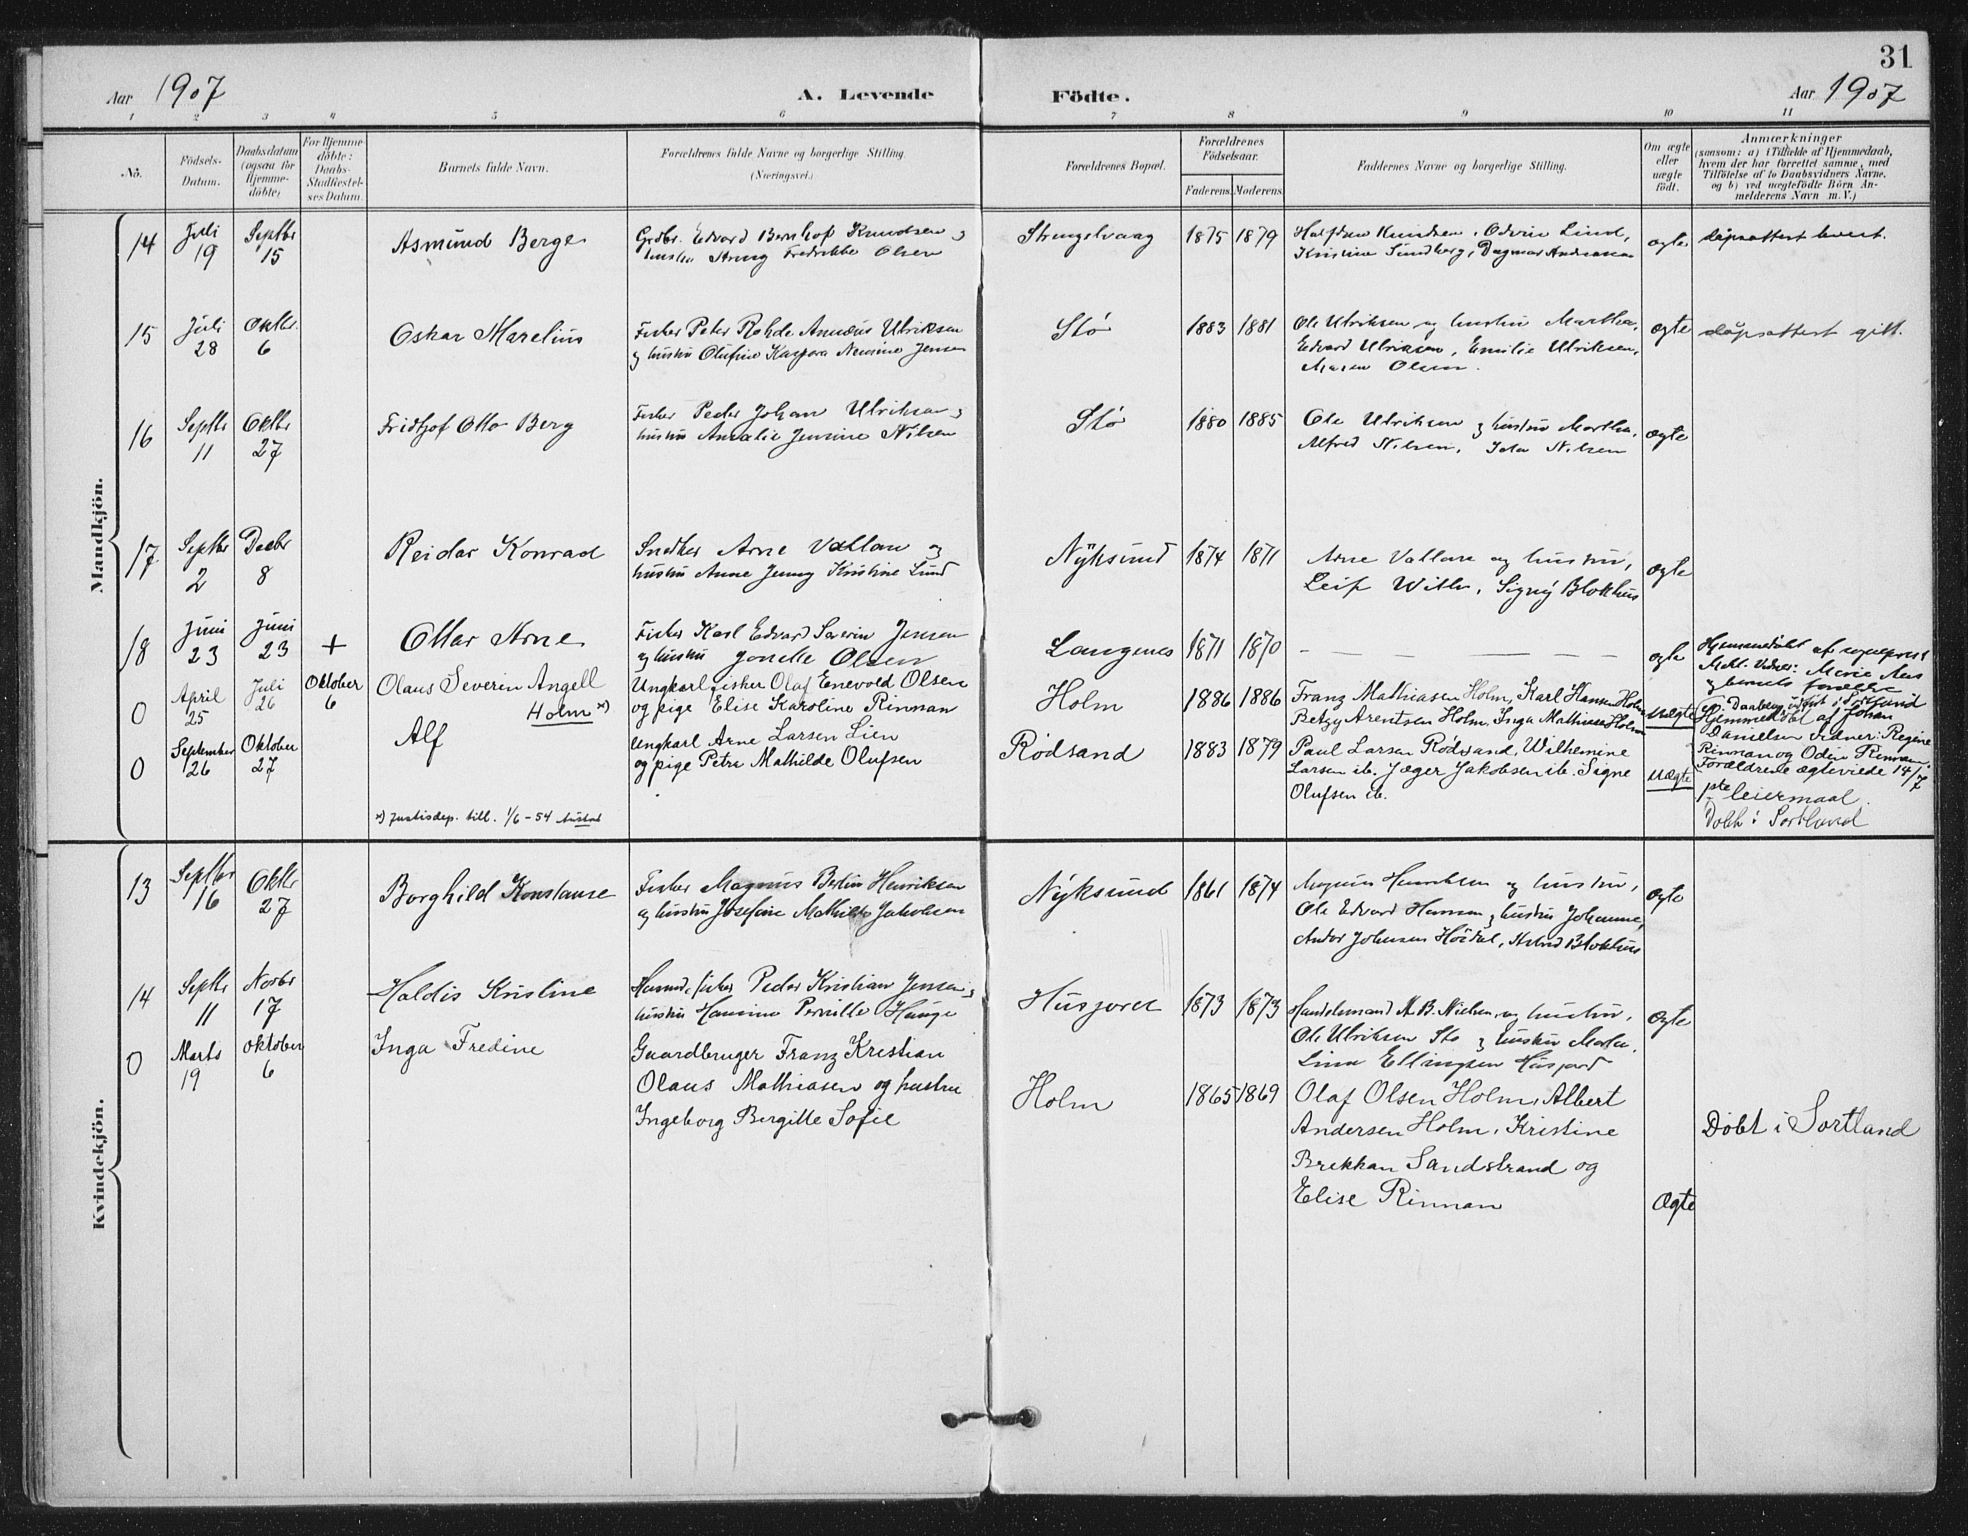 31
Aar 1907
A. Levende
Födte.
Aar 1907
1 2 3 4 5 6 7 8 9 10 11
No.
Födsels-
Datum.
Daabsdatum
(ogsaa for
Hjemme-
döbte)
For Hjemme
döbte:
Daabs-
Stadfæstel-
ses Datum.
Barnets fulde Navn.
Forældrenes fulde Navne og borgerlige Stilling.
(Næringsvei.)
Forældrenes Bopæl.
Forældrenes
Födselsaar.
Faderens. Moderens.
Faddernes Navne og borgerlige Stilling.
Om ægte
eller
uægte
födt.
Anmærkninger
(saasom: a) i Tilfælde af Hjemmedaab,
hvem der har forrettet samme, med
Tilföielse af to Daabsvidners Navne,
og b) ved uægtefödte Börn An-
melderens Navn m. V.)
Mandkjön.
14
Juli
19
Septbr
15
Asmund Berge
Grdbr. Edvard Bernhof Knudsen og
hustru Fredrikke Olsen
Strengelvaag
1875 1879
Halfdan Knudsen, Odvin Lund,
Kristine Sundberg, Dagmar Andreasen
ægte
dåpsattest levert.
15
Juli
28
Oktbr.
6
Oskar Marelius
Fisker Peter Rohde Annæus Ulriksen
og hustru Olufine Kaspara Jensen
Stø
1883 1881
Ole Ulriksen og hustru Martha,
Edvard Ulriksen, Emilie Ulriksen,
Maren Olsen.
ægte
dåpsattest gitt.
16
Septbr
11
Oktbr
27
Fridtjof Otto Berg
Fisker Peder Johan Ulriksen og
hustru Amalie Jensine Nilsen
Stø
1880 1885
Ole Ulriksen og hustru Martha,
Alfred Nilsen, Ida Nilsen
ægte
17
Septbr
2
Decbr
8
Reidar Konrad
Snedker Arne Vatlan og
hustru Anne Jenny Kristine Lund
Nyksund
1874 1871
Arne Vatlan og hustru,
Leif Witlr, Signy Blokhus
ægte
18
Juni
23
Juni
23
+
Ottar Arne
Fisker Karl Edvard Severin Jensen
og hustru Jonette Olsen
Langenes
1871 1870
ægte
Hjemmedøbt af sogneprest
Vidner: Marie Aas
og barnets forældre
0
April
25
Juli
26
Oktober
6
Olaus Severin Angell
Holm x)
Ungkarl fisker Olaf Enevold Olsen
og pige Elise Karoline Rinnan
Holm
1886 1886
Franz Mathiasen Holm, Karl Hansen Holm
Betzy Arentsen Holm, Inga Mathiasen Holm
Uægte
Daabsdag i Sortland
Hjemmedøbt af Johan
Danielsen Vidner: Regine
Rinnan og Odin Rinnan.
Forældrene ægteviede 14/7
0
September
26
Oktober
27
Alf
Ungkarl Arne Larsen Lien
og pige Petra Mathilde Olufsen
Rødsand
1883 1879
Paul Larsen Rødsand, Wilhemine
Larsen ib. Jæger Jakobsen ib. Signe
Olufsen ib.
Uægte
pte leiermaal.
Døbt i Sortland
x) Justisdep. till. 1/6-54
Kvindekjön.
13
Septbr
16
Oktbr
27
Borghild Konstanse
Fisker Magnus Berlin Henriksen
og hustru Josefine Mathilde Jakobsen
Nyksund
1861 1874
Magnus Henriksen og hustru,
Ole Edvard Hansen og hustru Johanne,
Andor Johnsen Høidal, Astrid Blokhus
ægte
14
Septbr
11
Novbr
17
Haldis Kristine
fisker Peder Kristian Jensen og
hustru Hansine Pernille Hauge
Husjoret
1873 1873
Handelsmand M. B. Nielsen og hustru,
Ole Ulriksen Stø og hustru Martha,
Lina Ellingsen Husjord
ægte
0
Marts
19
Oktober
6
Inga Fredine
Gaardbruger Franz Kristian
Olaus Mathiasen og hustru
Ingeborg Bergitte Sofie
Holm
1865 1869
Olaf Olsen Holm, Albert
Andersen Holm, Kristine
Brekkan Sandstrand og
Elise Rinnan
Ægte
Døbt i Sortland